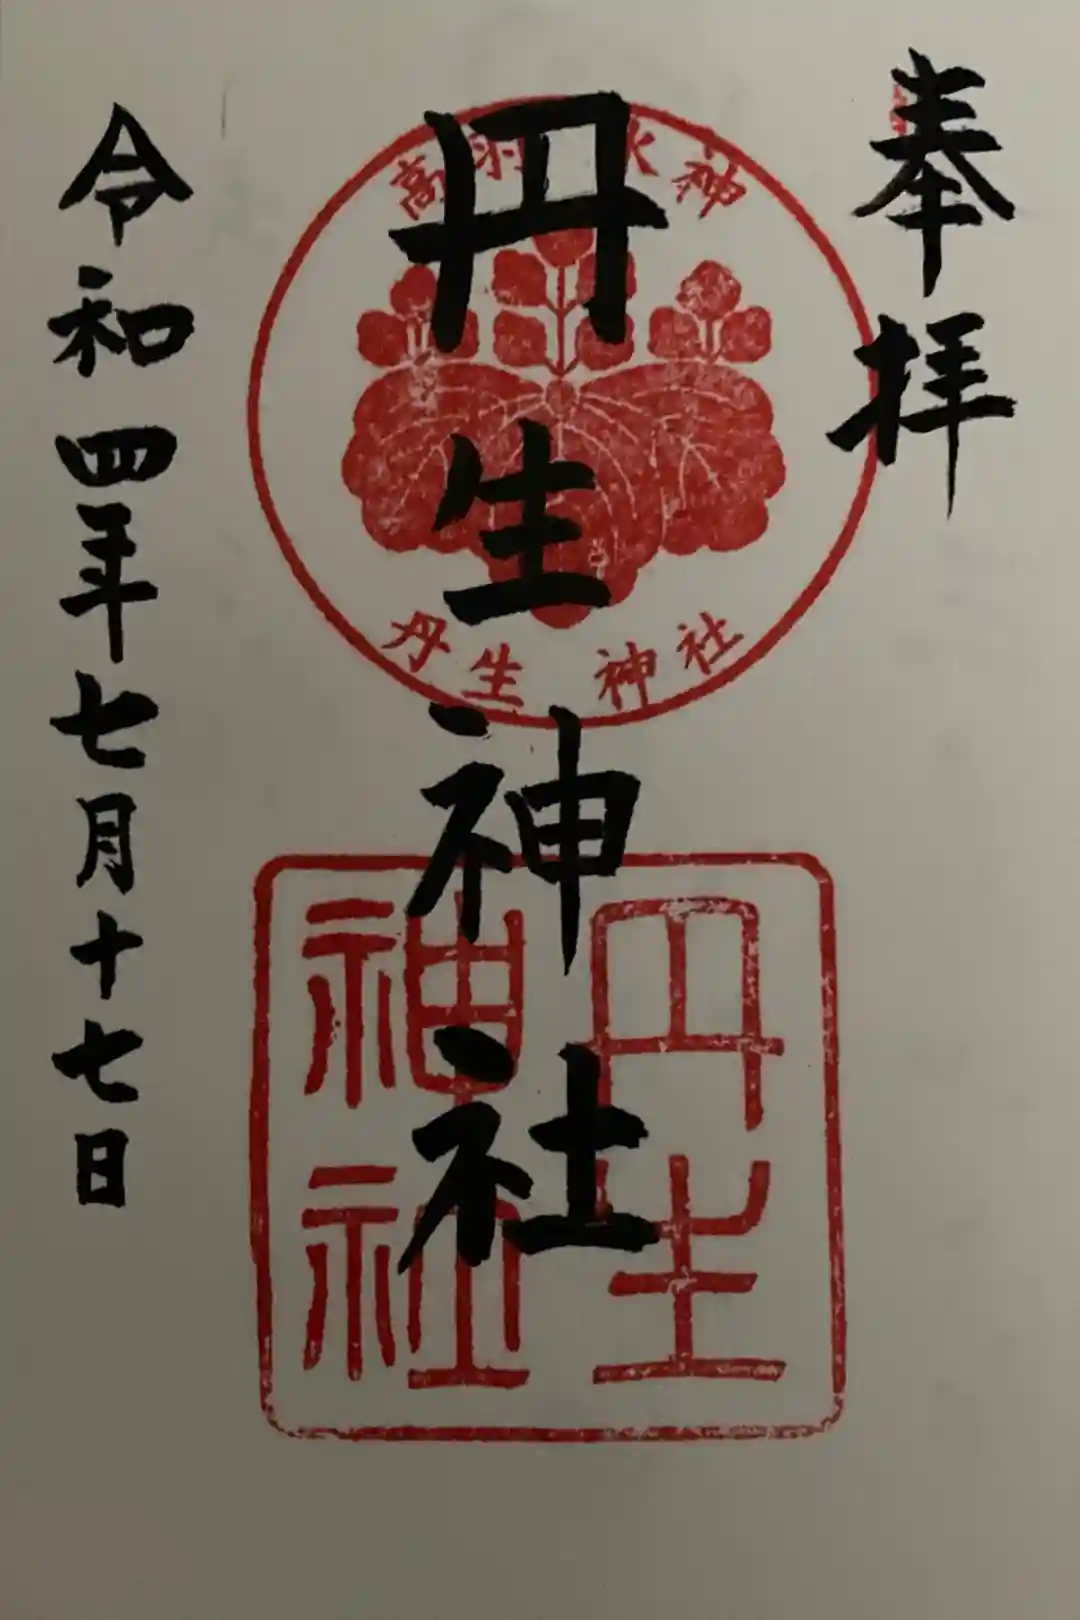 奉拝
高羽 水神
丹生神社
丹生 神社
丹生
神社
令和四年七月十七日